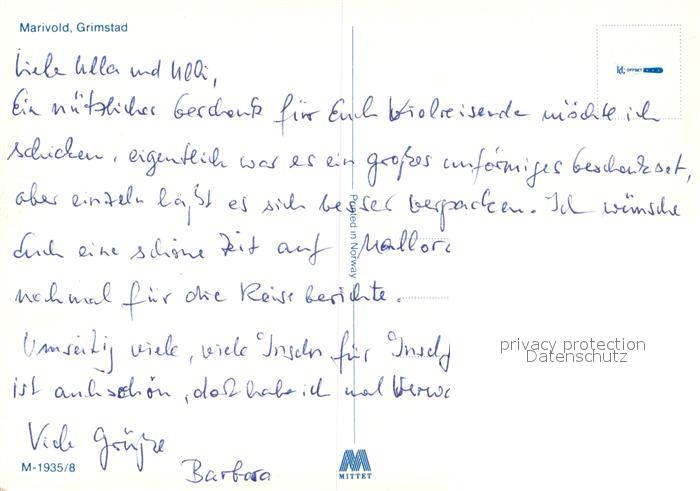 Marivold, Grimstad
Liebe Ulla und Ulli,
Ein nützliches Geschenk für Euch Vielreisende möchte ich
schicken, eigentlich war es ein großes unförmiges Geschenkset,
aber einzeln läßt es sich besser verpacken. Ich wünsche
Euch eine schöne Zeit auf Mallorc
nochmal für die Reiseberichte.
Umseitig viele, viele Inseln für Insel
ist auch schön, dort habe ich mal Verwa
Viele Grüße
Barbara
Printed in Norway
M-1935/8
MITTET
OFFSET
privacy protection
Datenschutz